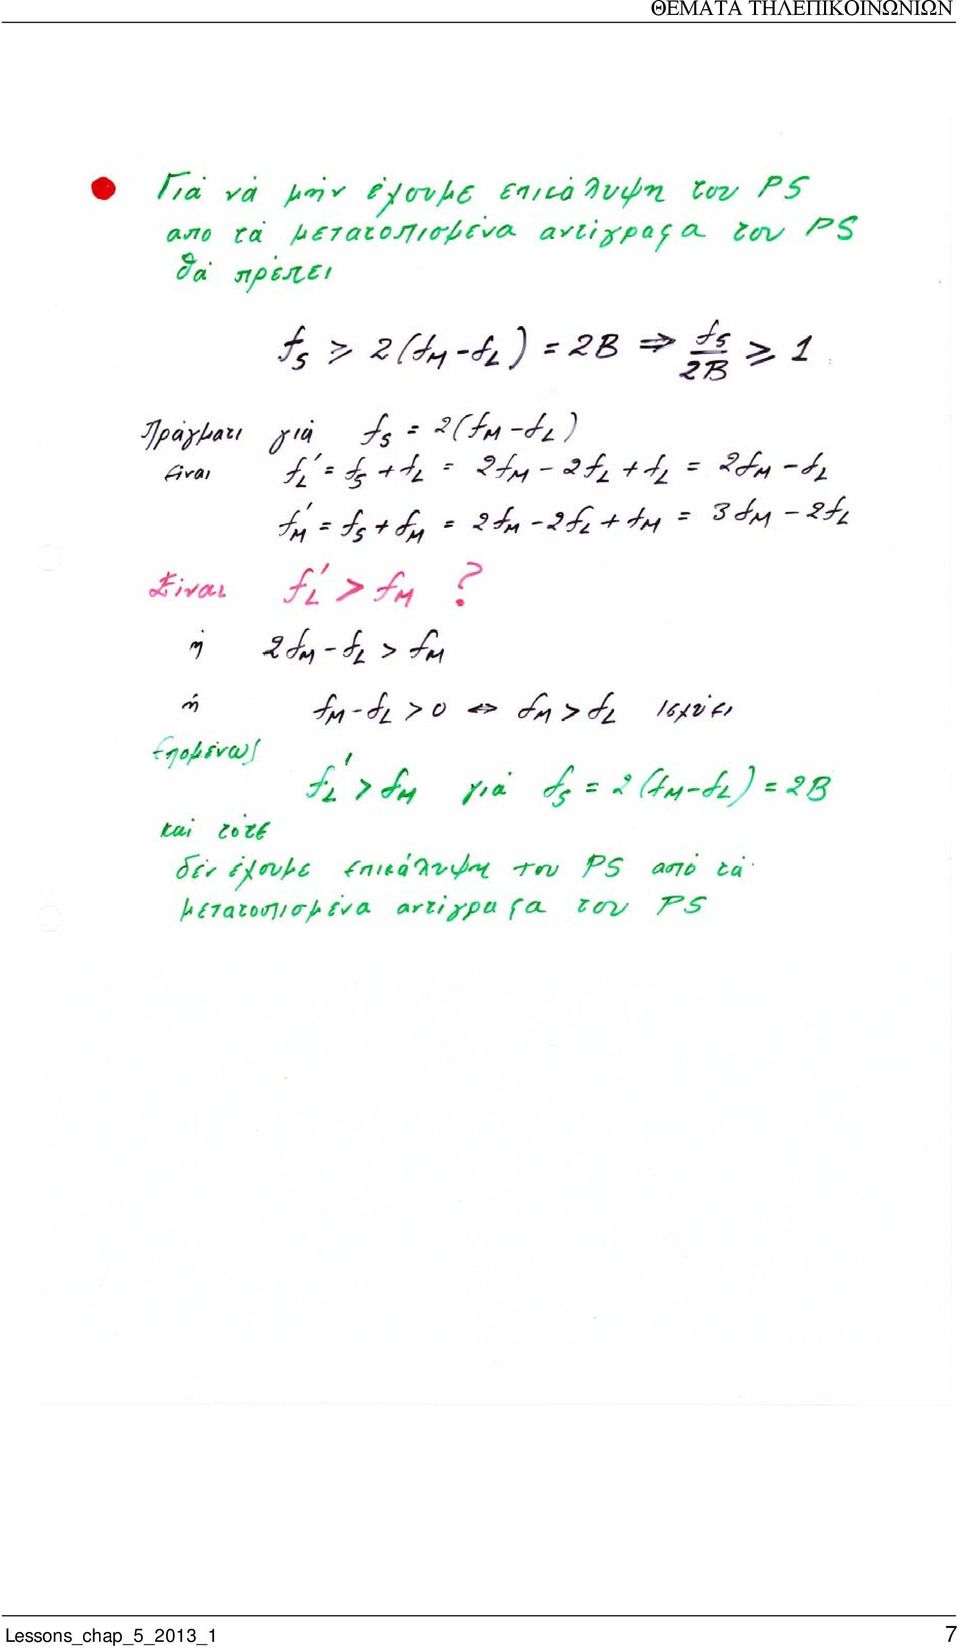 ΘΕΜΑΤΑ ΤΗΛΕΠΙΚΟΙΝΩΝΙΩΝ
Γιά νά μήν έχουμε επικάλυψη του PS
απο τά μετατοπισμένα αντίγραφα του PS
θά πρέπει
f_S ≥ 2(f_M - f_L) = 2B ⇒ f_S/2B ≥ 1
Πράγματι γιά f_S = 2(f_M - f_L)
είναι f_L' = f_S + f_L = 2f_M - 2f_L + f_L = 2f_M - f_L
f_M' = f_S + f_M = 2f_M - 2f_L + f_M = 3f_M - 2f_L
Είναι f_L' > f_M ?
ή 2f_M - f_L > f_M
ή f_M - f_L > 0 ⇔ f_M > f_L ισχύει
Επομένως
f_L' > f_M γιά f_S = 2(f_M - f_L) = 2B
καί τότε
δέν έχουμε επικάλυψη του PS από τά
μετατοπισμένα αντίγραφα του PS
Lessons_chap_5_2013_1 7